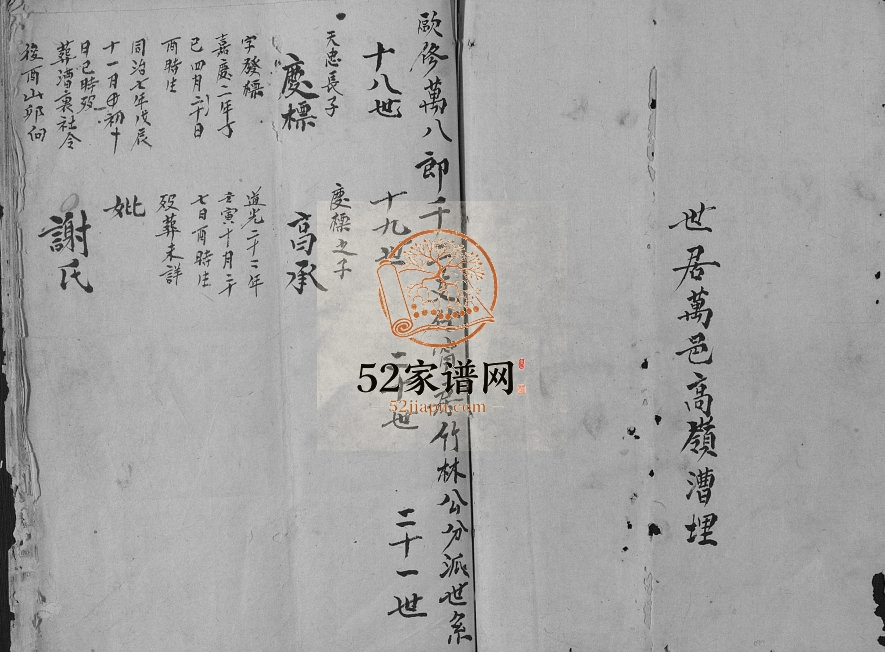 世居萬邑高嶺漕埋
歐修萬八郎千 竹林公分派世系
十八世
十九世
二十世
二十一世
天忠長子
慶標
字發標
嘉慶二年丁
巳四月二十日
酉時生
同治七年戊辰
十一月初十
日巳時歿
葬漕裏社令
後酉山卯向
慶標之子
高承
道光二十二年
壬寅十月二十
七日酉時生
歿葬未詳
妣
謝氏
52家谱网
52jiapu.com